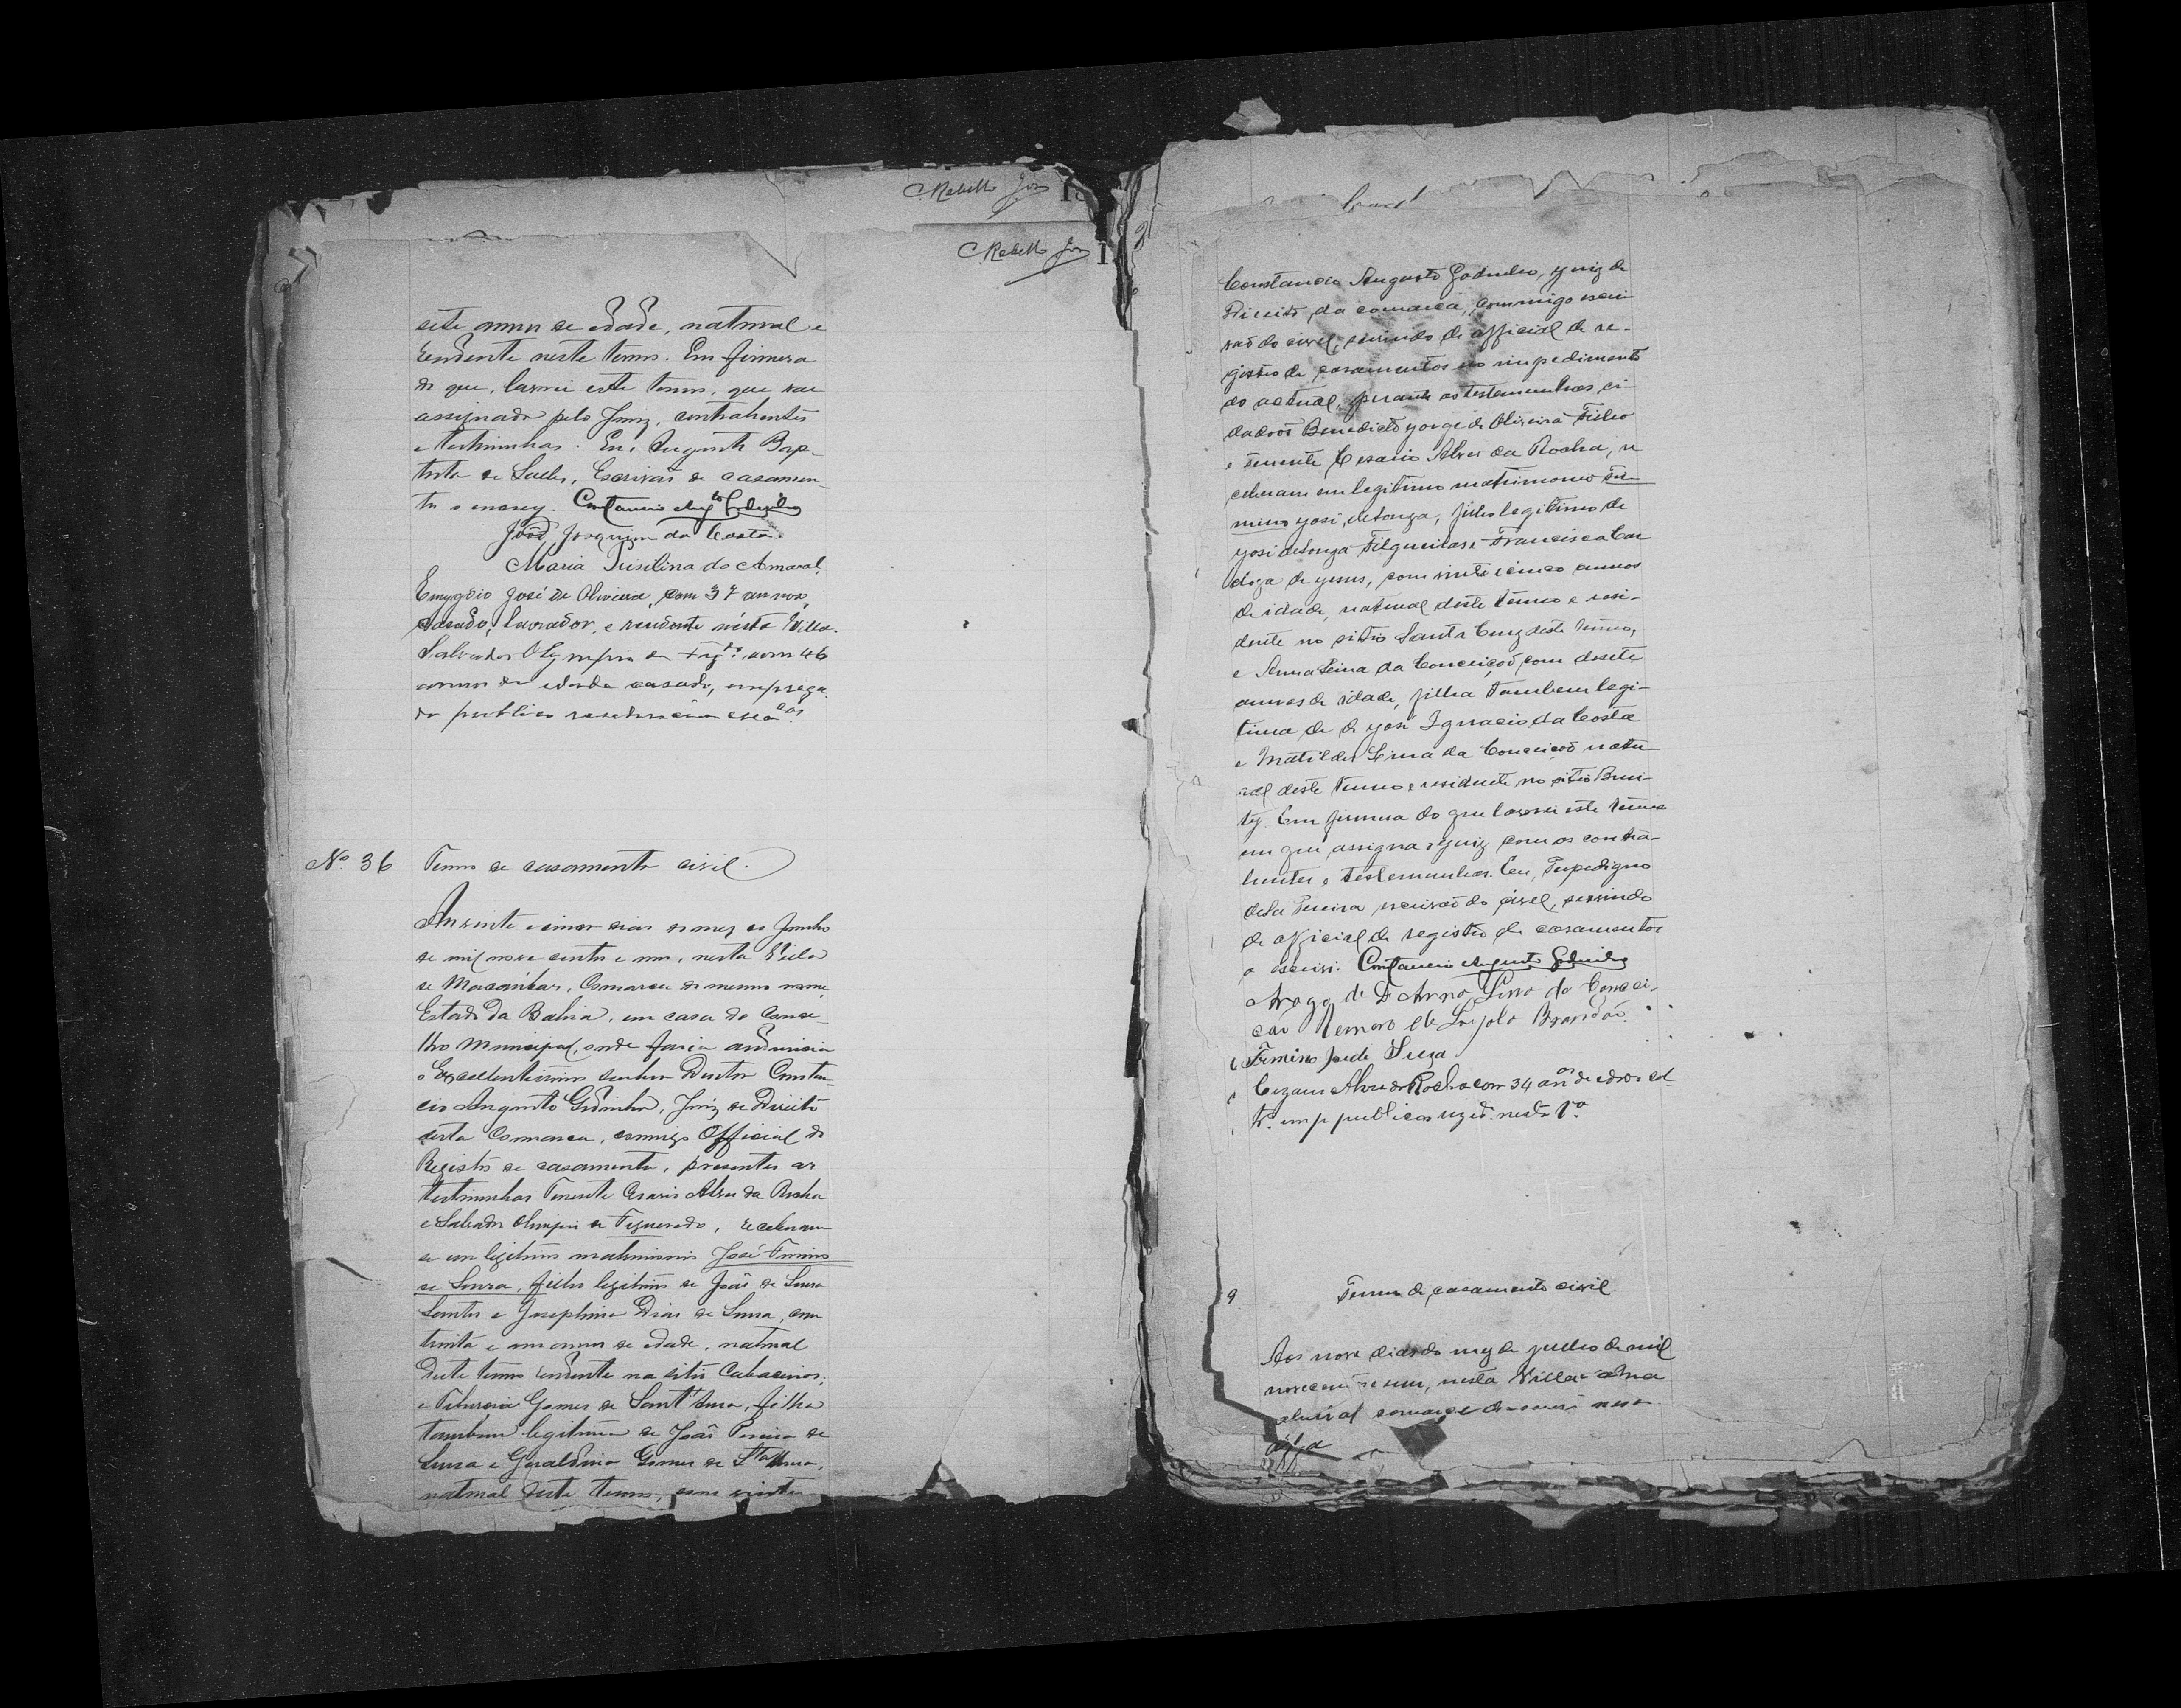 Rebello Jor
Rebello Jor
sete annos de edade, natural e
residente neste termo. Em firmesa
do que, lavrei este termo, que vae
assignado pelo Juiz, contrahentes
e testimunhas. Eu, Augusto Bap-
tista de Salles, Escrivão de casamen-
tos o escrevy. Constancio Augto Godinho
João Joaquim da Costa.
Maria Jusilina do Amaral.
Emygdio José de Oliveira, com 37 annos,
casado, lavrador, e residente nésta Villa.
Salvador Olympio de Figdo. com 46
annos de edade casado, emprega-
do publico
No. 36 Termo de casamento civil.
Aos vinte e cinco dias do mez de Junho
de mil nove centos e um, nesta Villa
de Macaúbas, Comarca do mesmo nome,
Estado da Bahia, em casa do Conse-
lho Municipal, onde fasia audiencia
o Excellentissimo Senhor Doutor Constan-
cio Augusto Godinho, Juiz de Direito
desta Comarca, comigo Official do
Registo de casamento, presentes as
testimunhas Tenente Cesario Alves da Rocha
e Salvador Olimpio de Figueredo, receberam
se em legitimo matrimonio José Firmino
de Sousa, filho legitimo de João de Sousa
Santos e Josephina Dias de Sousa, com
trinta e um annos de edade, natural
deste termo residente no sitio Cabaceiros,
e Tiburcia Gomes de Sant'Anna, filha
tambem legitima de João Pereira de
Sousa e Geraldina Gomes de Sta Anna,
natural deste termo, com vinte
Constancio Augusto Godinho, juiz de
Direito da comarca, commigo escri-
vaõ do civel, servindo de official de re-
gistro de casamentos no impedimento
do actual, perante as testemunhas, ci-
dadaõs Benedicto Jorge de Oliveira Filho
e Tenente Cesario Alves da Rocha, re
ceberam em legitimo matrimonio Fir-
mino José de Souza, filho legitimo de
José de Souza Filgueiras e Francisca Car
doza de Jesus, com vinte e cinco annos
de idade, natural deste termo e resi-
dente no sitio Santa Cruz deste termo,
e Anna Lina da Conceiçaõ, com desete
annos de idade, filha tambem legi-
tima de José Ignacio da Costa
e Matildes Lina da Conceiçaõ natu-
ral deste termo e residente no sitio Buri-
ty. Em firmeza do que lavrei este termo
em que assigna o juiz com os contra-
hentes e testemunhas. Eu,
de Sá Pereira escrivaõ do civel, servindo
de official de registro de casamentos
o escrivi. Constancio Augusto Godinho
A rogo de D Anna Lina da Concei-
cão Loyola Brandão.
Firmino José de Souza
Cezario Alves da Rocha com 34 annos de edade
emp publico rezide nesta Va
9 Termo de casamento civil
Aos nove dias do mez de julho de mil
novecentos e um, nesta Villa